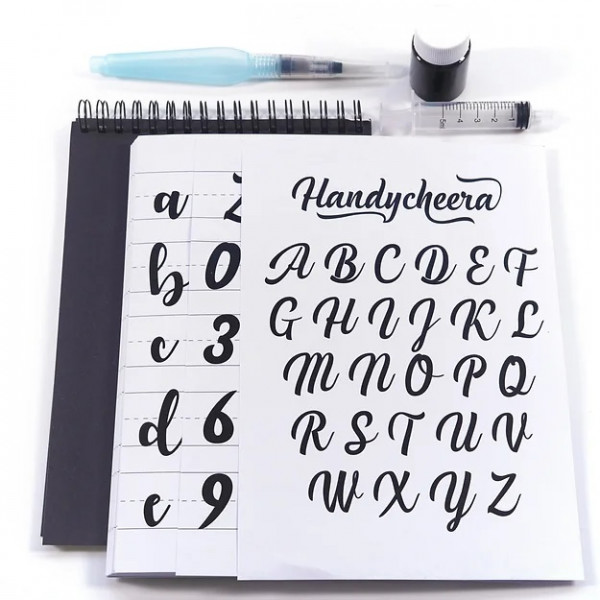 Handycheera
A B C D E F
G H I J K L
M N O P Q
R S T U V
W X Y Z
a
b 0
c 3
d 6
e 9
5ml 4 3 2 1